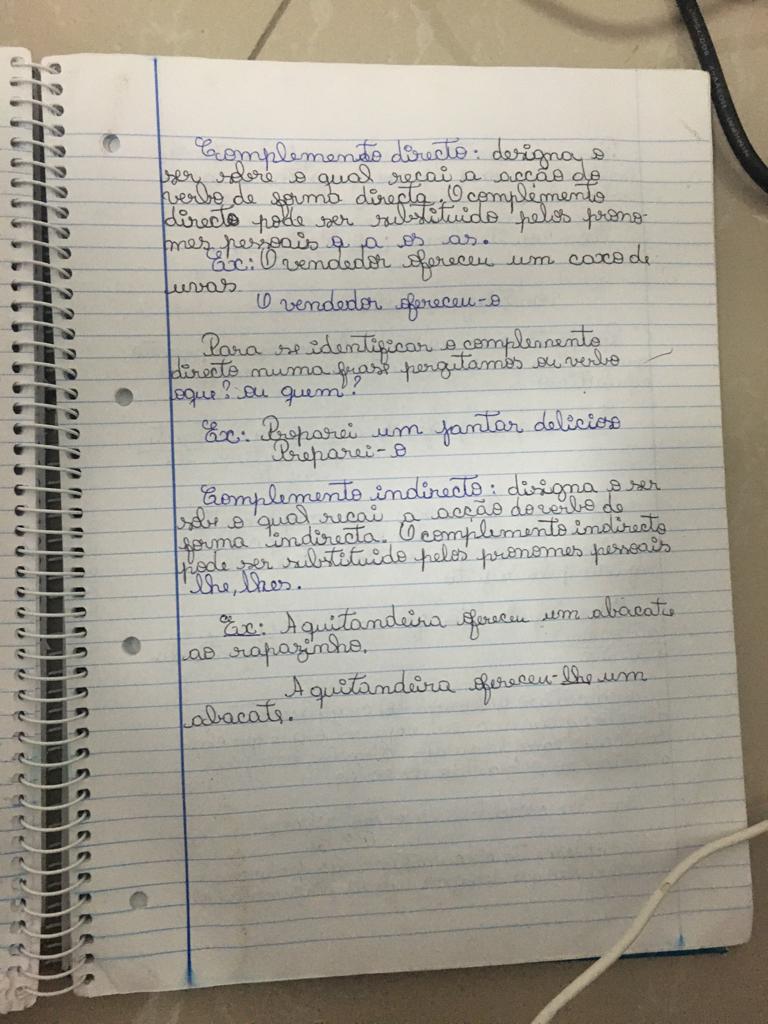 Complemento directo: designa o
ser sobre o qual recai a acção do
verbo de forma directa. O complemento
directo pode ser substituido pelos prono-
mes pessoais o a os as.
Ex: O vendedor ofereceu um caxo de
uvas
O vendedor ofereceu-o
Para se identificar o complemento
directo numa frase pergutamos ou verbo
oque? ou quem?
Ex: Preparei um jantar delicioso
Preparei-o
Complemento indirecto: disigna o ser
sobre o qual recai a acção do verbo de
forma indirecta. O complemento indirecto
pode ser substituido pelos pronomes pessoais
lhe, lhes.
Ex: A quitandeira ofereceu um abacate
ao rapazinho.
A quitandeira ofereceu-lhe um
abacate.